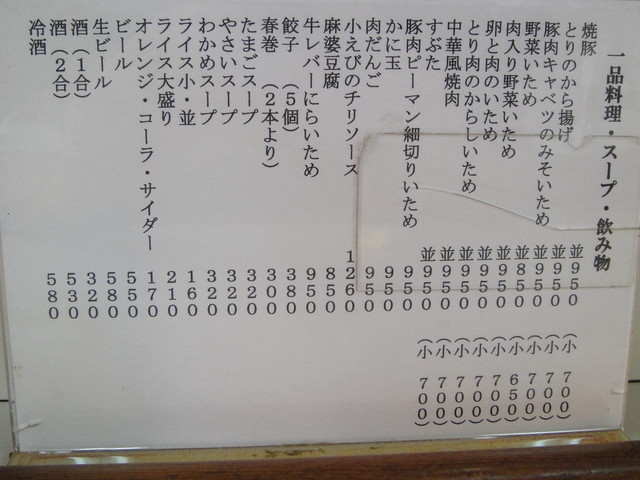 一品料理・スープ・飲み物
焼豚 並950 (小 700)
とりのから揚げ 並950 (小 700)
豚肉キャベツのみそいため 並950 (小 700)
野菜いため 並850 (小 650)
肉入り野菜いため 並950 (小 700)
卵と肉のいため 並950 (小 700)
とり肉のからしいため 並950 (小 700)
中華風焼肉 並950 (小 700)
すぶた 並950 (小 700)
豚肉ピーマン細切りいため 950
かに玉 950
肉だんご 950
小えびのチリソース 1260
麻婆豆腐 850
牛レバーにらいため 950
餃子 (5個) 380
春巻 (2本より) 300
たまごスープ 320
やさいスープ 320
わかめスープ 320
ライス小・並 160
ライス大盛り 210
オレンジ・コーラ・サイダー 170
ビール 550
生ビール 580
酒(1合) 320
酒(2合) 530
冷酒 580